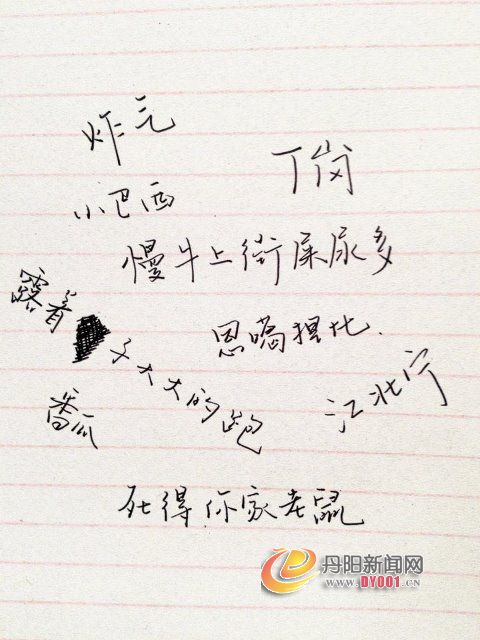 炸乞
丁岗
小巴西
慢牛上街屎尿多
露着
子大大的跑
恩嗝狸比.
番瓜
江北宁
死得你家老鼠
丹阳新闻网
WWW.DY001.CN